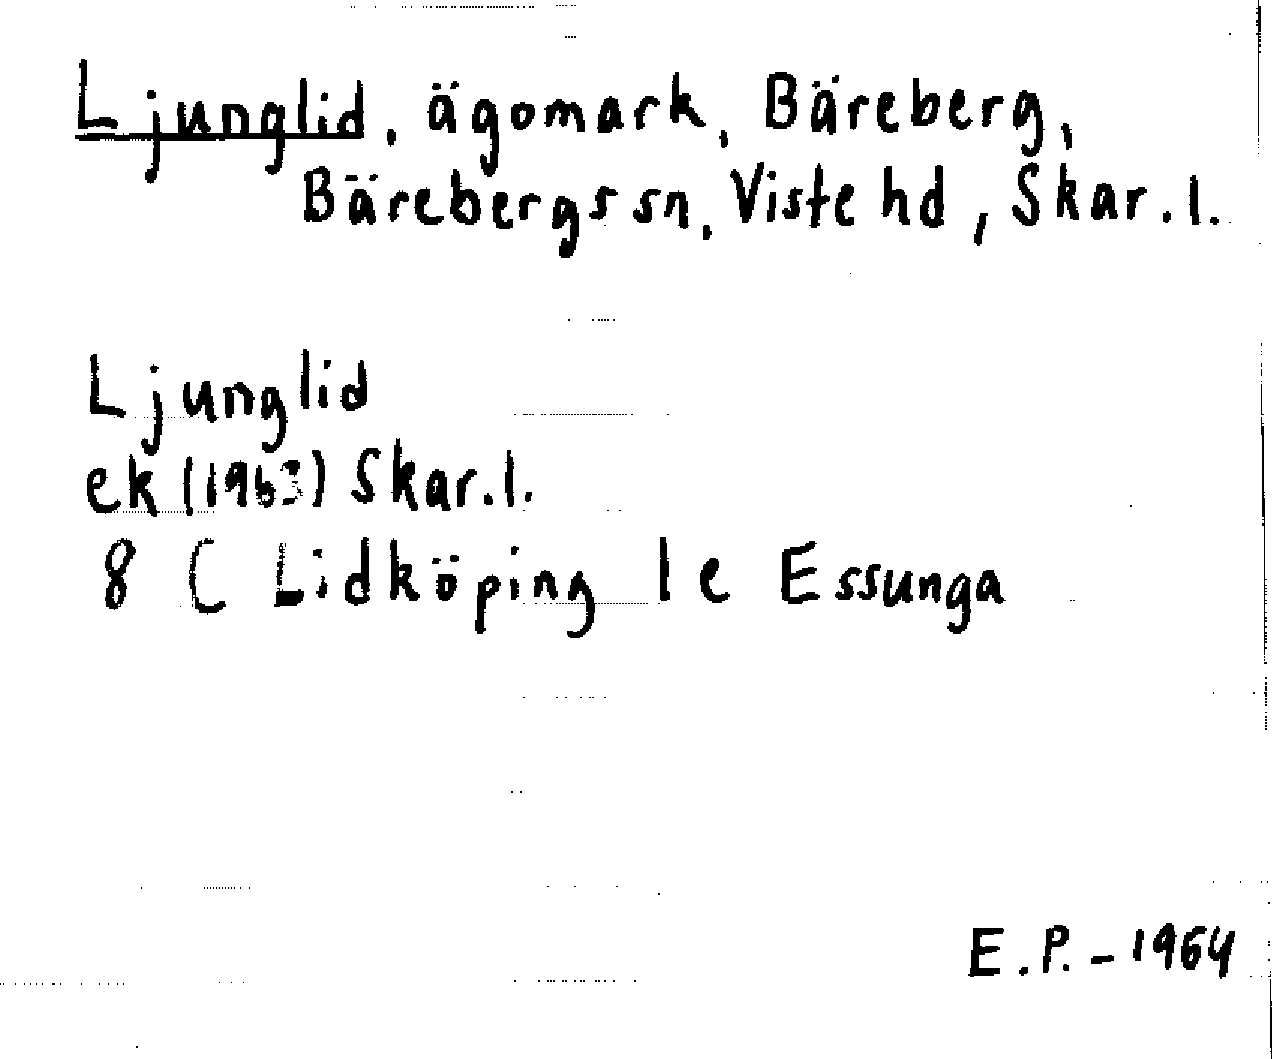 Ljunglid, ägomark, Bäreberg,
Bärebergs sn, Viste hd, Skar.l.
Ljunglid
ek (1963) Skar.l.
8 C Lidköping 1e Essunga
E.P. - 1964